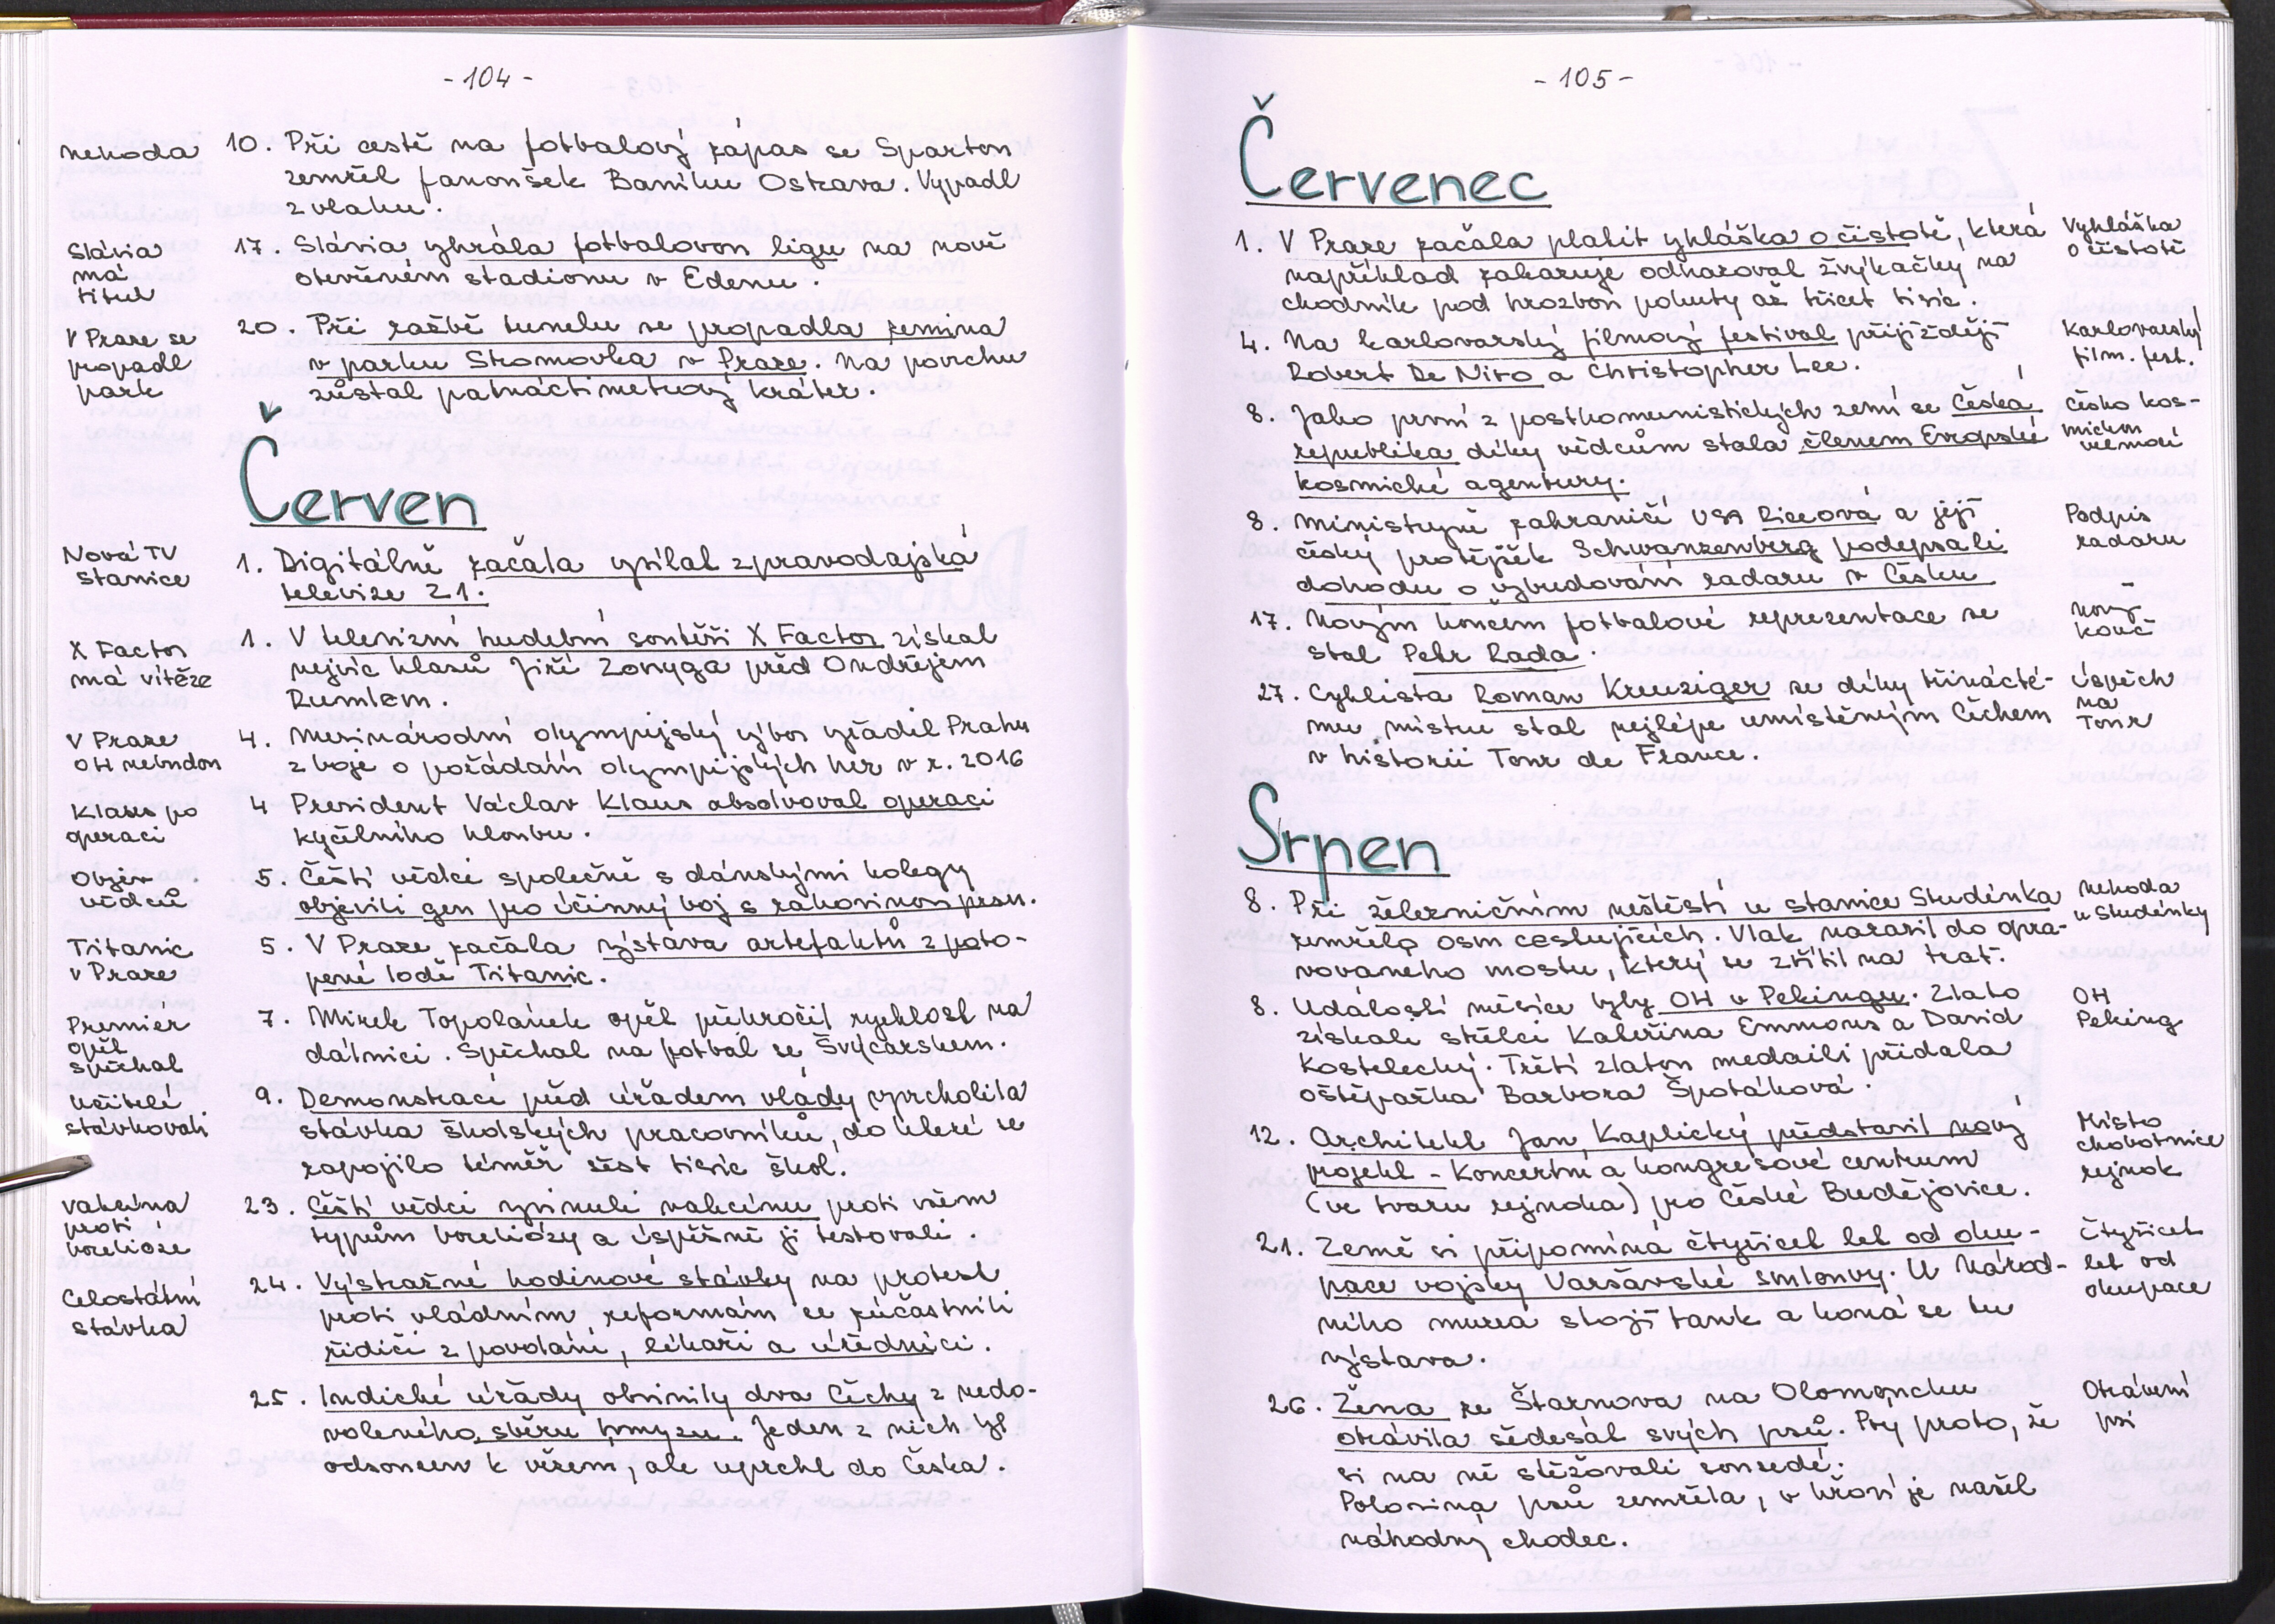 - 104 -
nehoda
10. Při cestě na fotbalový zápas se Spartou
zemřel fanoušek Baníku Ostrava. Vypadl
z vlaku.
Slávia
má
titul
17. Slávia vyhrála fotbalovou ligu na nově
otevřeném stadionu v Edenu.
V Praze se
propadl
park
20. Při ražbě tunelu se propadla zemina
v parku Stromovka v Praze. Na povrchu
zůstal patnáctimetrový kráter.
Červen
Nová TV
stanice
1. Digitálně začala vysílat zpravodajská
televize Z1.
X Factor
má vítěze
1. V televizní hudební soutěži X Factor získal
nejvíc hlasů Jiří Zonyga před Ondřejem
Rumlem.
V Praze
OH nebudou
4. Mezinárodní olympijský výbor vyřadil Prahu
z boje o pořádání olympijských her v r. 2016
Klaus po
operaci
4 Prezident Václav Klaus absolvoval operaci
kyčelního kloubu.
Objev
vědců
5. Čeští vědci společně s dánskými kolegy
objevili gen pro účinný boj s rakovinou prsu.
Tritanic
v Praze
5. V Praze začala výstava artefaktů z poto-
pené lodě Tritanic.
Premiér
opět
spěchal
7. Mirek Topolánek opět překročil rychlost na
dálnici. Spěchal na fotbal se Švýcarskem.
Učitelé
stávkovali
9. Demonstrací před úřadem vlády vyvrcholila
stávka školských pracovníků, do které se
zapojilo téměř šest tisíc škol.
vakcína
proti
borelióze
23. Čeští vědci vyvinuli vakcínu proti všem
typům boreliózy a úspěšně ji testovali.
Celostátní
stávka
24. Výstražné hodinové stávky na protest
proti vládním reformám se zúčastnili
řidiči z povolání, lékaři a úředníci.
25. Indické úřady obvinily dva Čechy z nedo-
voleného sběru hmyzu. Jeden z nich byl
odsouzen k vězení, ale uprchl do Česka.
- 105 -
Červenec
1. V Praze začala platit vyhláška o čistotě, která
například zakazuje odhazovat žvýkačky na
chodník pod hrozbou pokuty až třicet tisíc.
Vyhláška
o čistotě
4. Na karlovarský filmový festival přijíždějí
Robert De Niro a Christopher Lee.
Karlovarský
film. fest.
8. Jako první z postkomunistických zemí se Česká
republika díky vědcům stala členem Evropské
kosmické agentury.
Česko kos-
mickou
velmocí
8. Ministryně zahraničí USA Riceová a její
český protějšek Schwarzenberg podepsali
dohodu o vybudování radaru v Česku
Podpis
radaru
17. Novým koučem fotbalové reprezentace se
stal Petr Rada.
nový
kouč
27. Cyklista Roman Kreuziger se díky třinácté-
mu místu stal nejlépe umístěným Čechem
v historii Tour de France.
úspěch
na
Tour
Srpen
8. Při železničním neštěstí u stanice Studénka
zemřelo osm cestujících. Vlak narazil do opra-
vovaného mostu, který se zřítil na trať.
nehoda
u Studénky
8. Událostí měsíce byly OH v Pekingu. Zlato
získali střelci Kateřina Emmons a David
Kostelecký. Třetí zlatou medaili přidala
oštěpařka Barbora Špotáková.
OH
Peking
12. Architekt Jan Kaplický představil nový
projekt - Koncertní a kongresové centrum
(ve tvaru rejnoka) pro České Budějovice.
Místo
chobotnice
rejnok
21. Země si připomíná čtyřicet let od oku-
pace vojsky Varšavské smlouvy. U Národ-
ního muzea stojí tank a koná se tu
výstava.
Čtyřicet
let od
okupace
26. Žena ze Štarnova na Olomoucku
otrávila šedesát svých psů. Prý proto, že
si na ně stěžovali sousedé.
Polovina psů zemřela, v křoví je našel
náhodný chodec.
Otrávení
psi